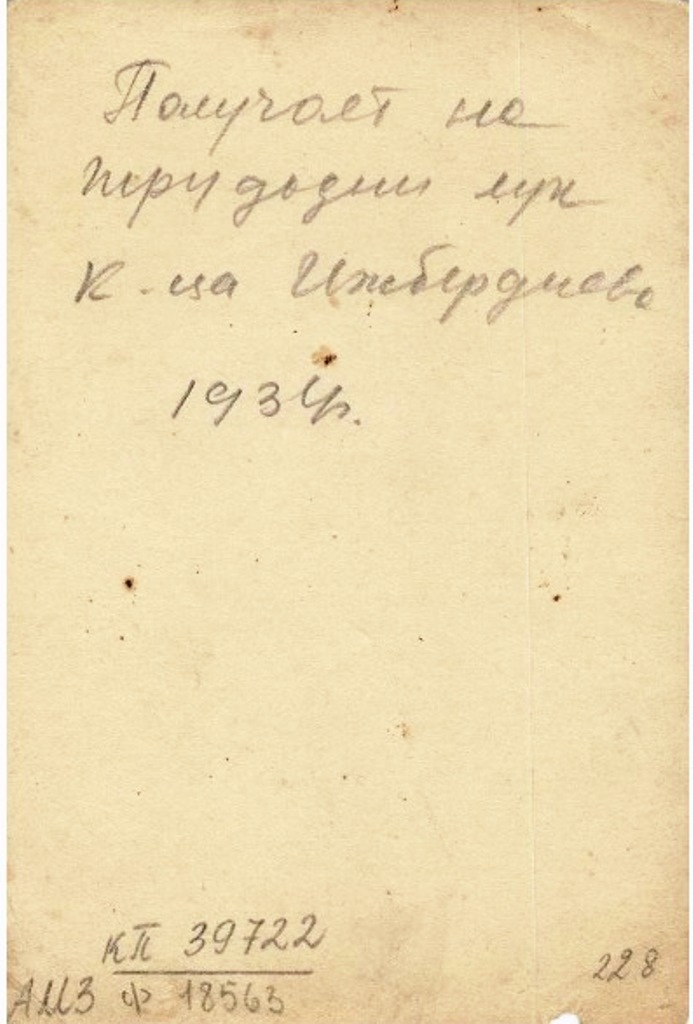 Получает на
трудодни лук
к-ца Ижбердиева
1934г.
КП 39722
АМЗ Ф 18563
228